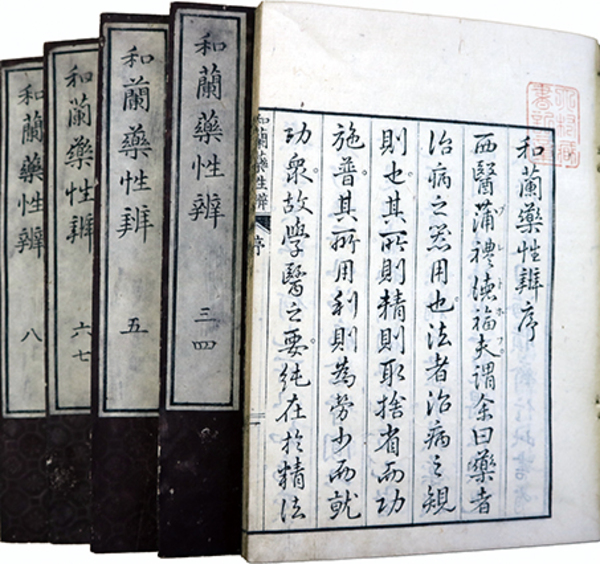 和蘭藥性辨序
西醫蒲禮福夫謂余曰藥者
治病之器用也。法者治病之規
則也。其所則精則取捨省而功
施普。其所用利則為勞少而就
功衆。故學醫之要。純在於精法
和蘭藥性辨 序
和蘭藥性辨 三四
和蘭藥性辨 五
和蘭藥性辨 六七
和蘭藥性辨 八